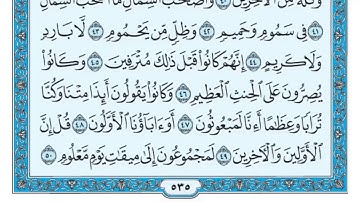 وَثُلَّةٌ مِّنَ ٱلْـَٔاخِرِينَ ۝٤٠ وَأَصْحَٰبُ ٱلشِّمَالِ مَآ أَصْحَٰبُ ٱلشِّمَالِ
۝٤١ فِى سَمُومٍ وَحَمِيمٍ ۝٤٢ وَظِلٍّ مِّن يَحْمُومٍ ۝٤٣ لَّا بَارِدٍ
وَلَا كَرِيمٍ ۝٤٤ إِنَّهُمْ كَانُوا۟ قَبْلَ ذَٰلِكَ مُتْرَفِينَ ۝٤٥ وَكَانُوا۟
يُصِرُّونَ عَلَى ٱلْحِنثِ ٱلْعَظِيمِ ۝٤٦ وَكَانُوا۟ يَقُولُونَ أَئِذَا مِتْنَا وَكُنَّا
تُرَابًا وَعِظَٰمًا أَءِنَّا لَمَبْعُوثُونَ ۝٤٧ أَوَءَابَآؤُنَا ٱلْأَوَّلُونَ ۝٤٨ قُلْ إِنَّ
ٱلْأَوَّلِينَ وَٱلْـَٔاخِرِينَ ۝٤٩ لَمَجْمُوعُونَ إِلَىٰ مِيقَٰتِ يَوْمٍ مَّعْلُومٍ ۝٥٠
٥٣٥